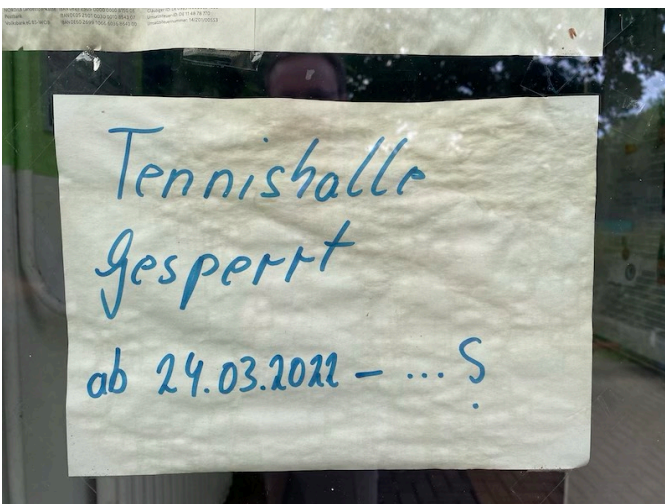 Tennishalle
gesperrt
ab 24.03.2022 – ... ?